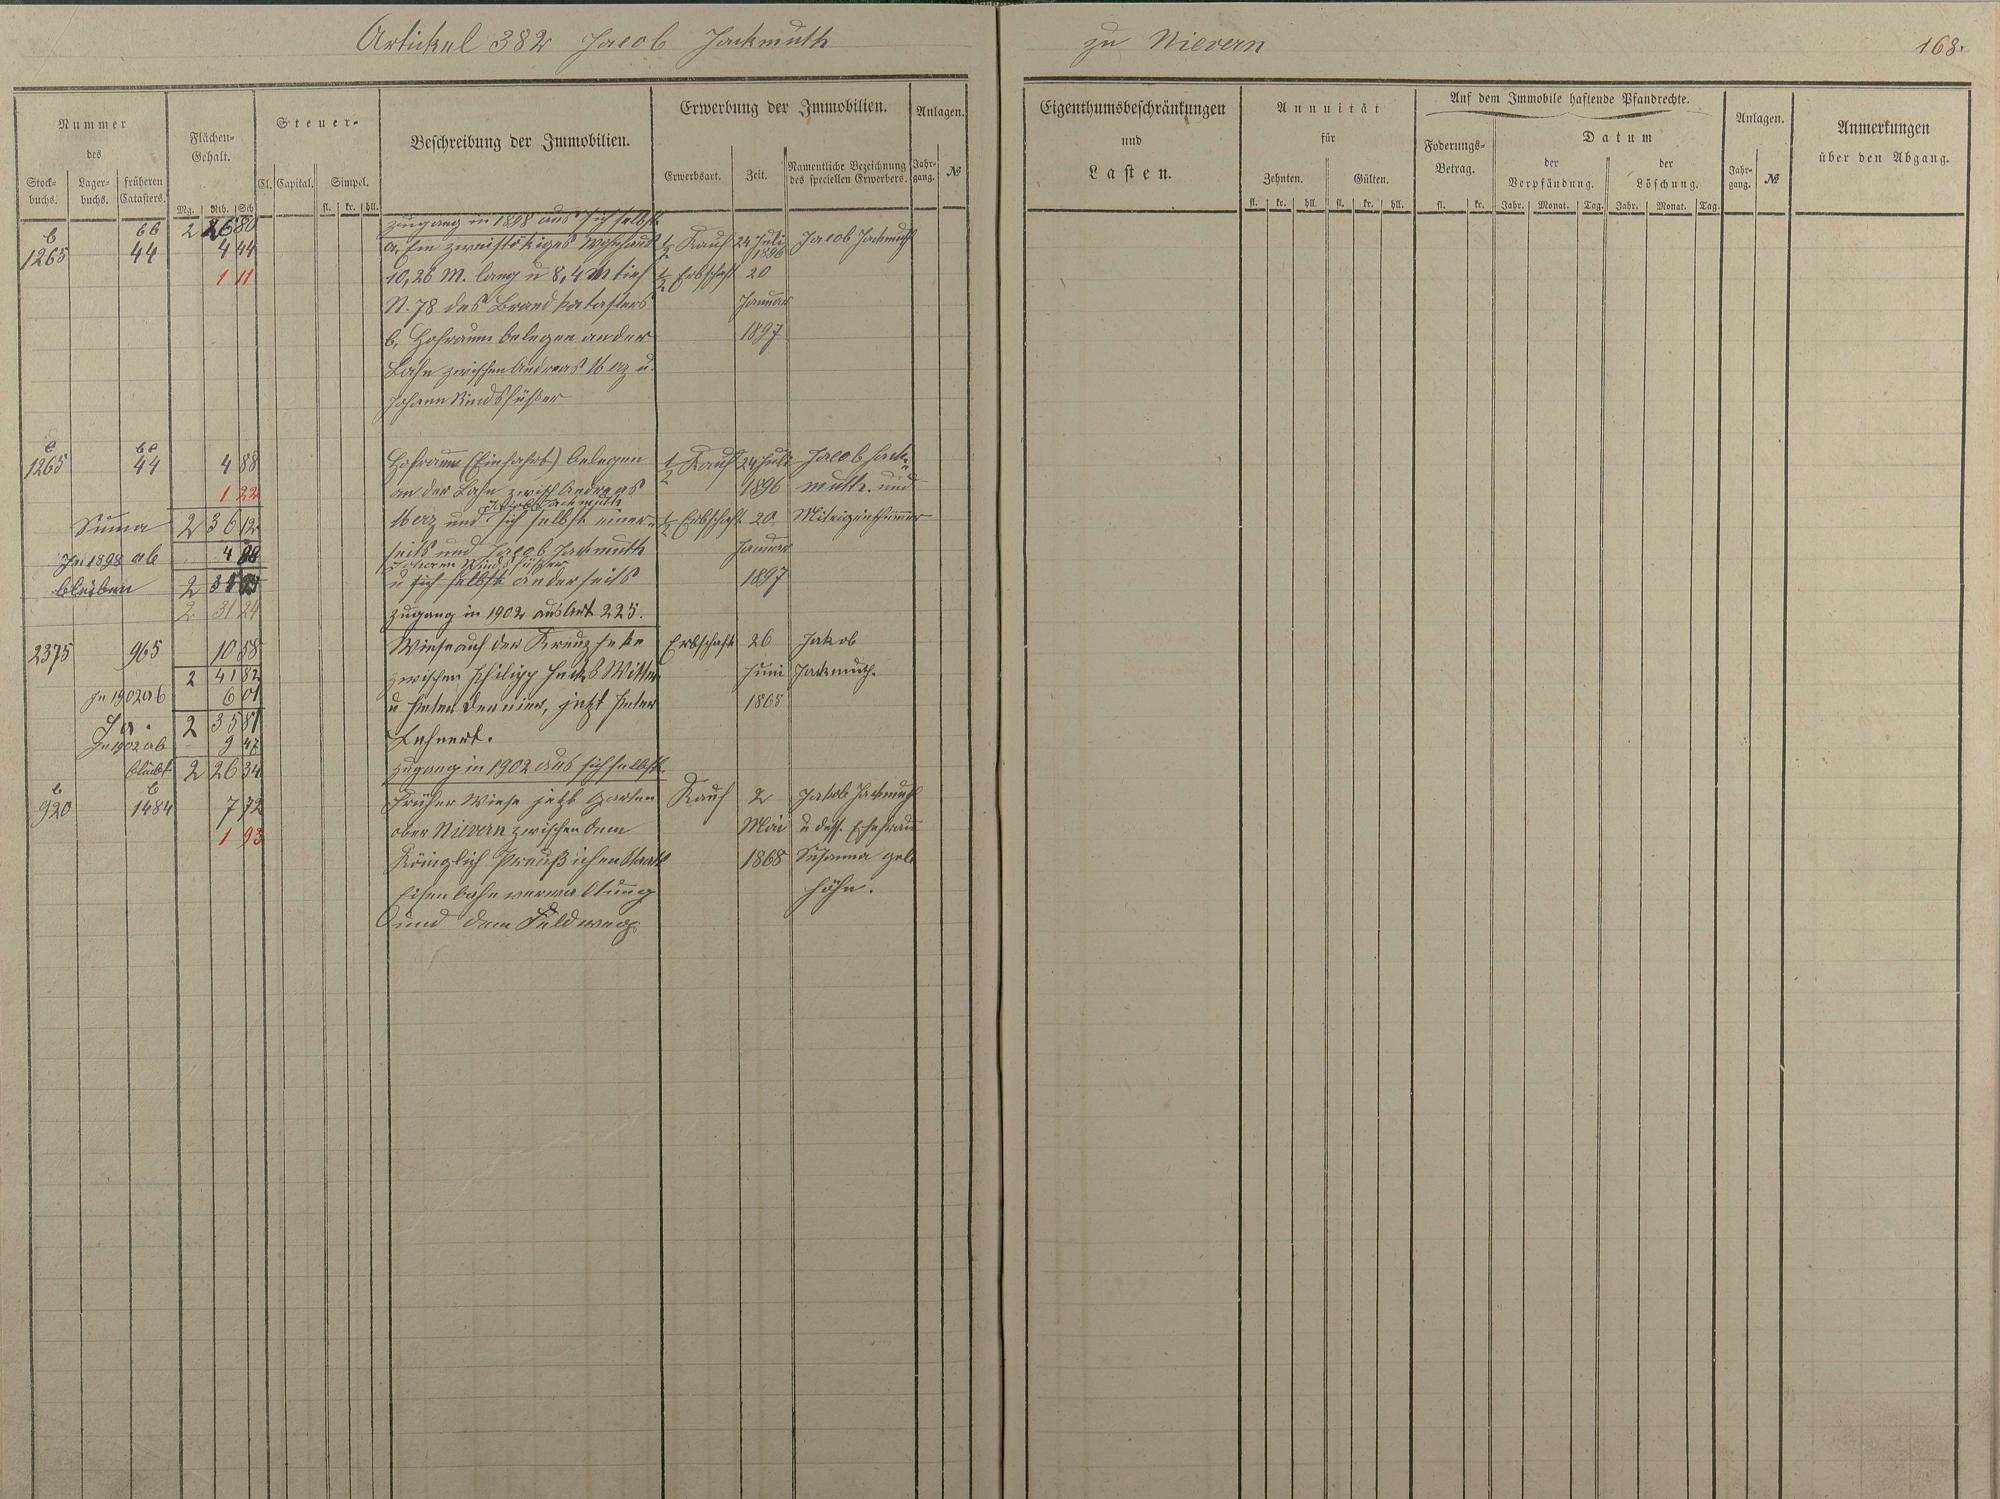 Artickel 382 Jacob Jackmuth
zu Nievern
168.
Nummer
des
Stock-
buchs.
Lager-
buchs.
früheren
Catasters.
Flächen-
Gehalt.
Mg. Rth. Sch
Steuer-
Cl. Capital. Simpel.
fl. kr. hll.
Beschreibung der Immobilien.
Erwerbung der Immobilien.
Erwerbsart. Zeit.
Namentliche Bezeichnung
des speciellen Erwerbers.
Anlagen.
Jahr-
gang. №
Eigenthumsbeschränkungen
und
Lasten.
Annuität
für
Zehnten. Gülten.
fl. kr. hll. fl. kr. hll.
Auf dem Immobile haftende Pfandrechte.
Foderungs-
Betrag.
fl. kr.
Datum
der
Verpfändung.
der
Löschung.
Jahr. Monat. Tag. Jahr. Monat. Tag.
Anlagen.
Jahr-
gang. №
Anmerkungen
über den Abgang.
Zugang in 1898 aus sich selbst
b bb 2 26 80
1265 44 4 44 a, Ein zweistökiges Wohnhaus ½ Kauf 24 Juli 1896 Jacob Jackmuth
1 11 10,26 M. lang u 8,4 M tief ½ Erbschaft 20
N. 78 des Brandkatasters Januar
b, Hofraum belegen an der 1897
Lahn zwischen Andreas Merz u.
Johann Rindsfüßer
c bc
1265 44 4 88 Hofraum (Einfahrt) belegen ½ Kauf 24 Juli Jacob Jack-
1 22 an der Lahn zwisch Andreas 1896 muth und
Jacob Jackmuth
Suma 2 36 12 Merz und sich selbst einer- ½ Erbschaft 20 Miteigenthümer
In 1898 ab 4 88 seits und Jacob Jackmuth Januar
Johann Rindsfüßer
bleiben 2 31 u sich selbst anderseits 1897
2 31 24 Zugang in 1902 aus Art 225.
2375 965 10 58 Wiese auf der Kreuzheke Erbschaft 26 Jakob
2 41 82 zwischen Philipp Witwe Juni Jackmuth.
In 1902 ab 6 01 u Peter, jetzt Peter 1865
2 35 81 Lehnert.
In 1902 ab 9 47
bleibt 2 26 34 Zugang in 1902 aus sich selbst.
b b
920 1484 7 72 Früher Wiese jetzt Garten Kauf 2 Jakob Jackmuth
1 93 ober Nievern zwischen dem Mai u dess. Ehefrau
Königlich Preußichen Staats 1868 Susanna geb
Eisenbahnverwaltung Höhn.
und dem Feldweg.